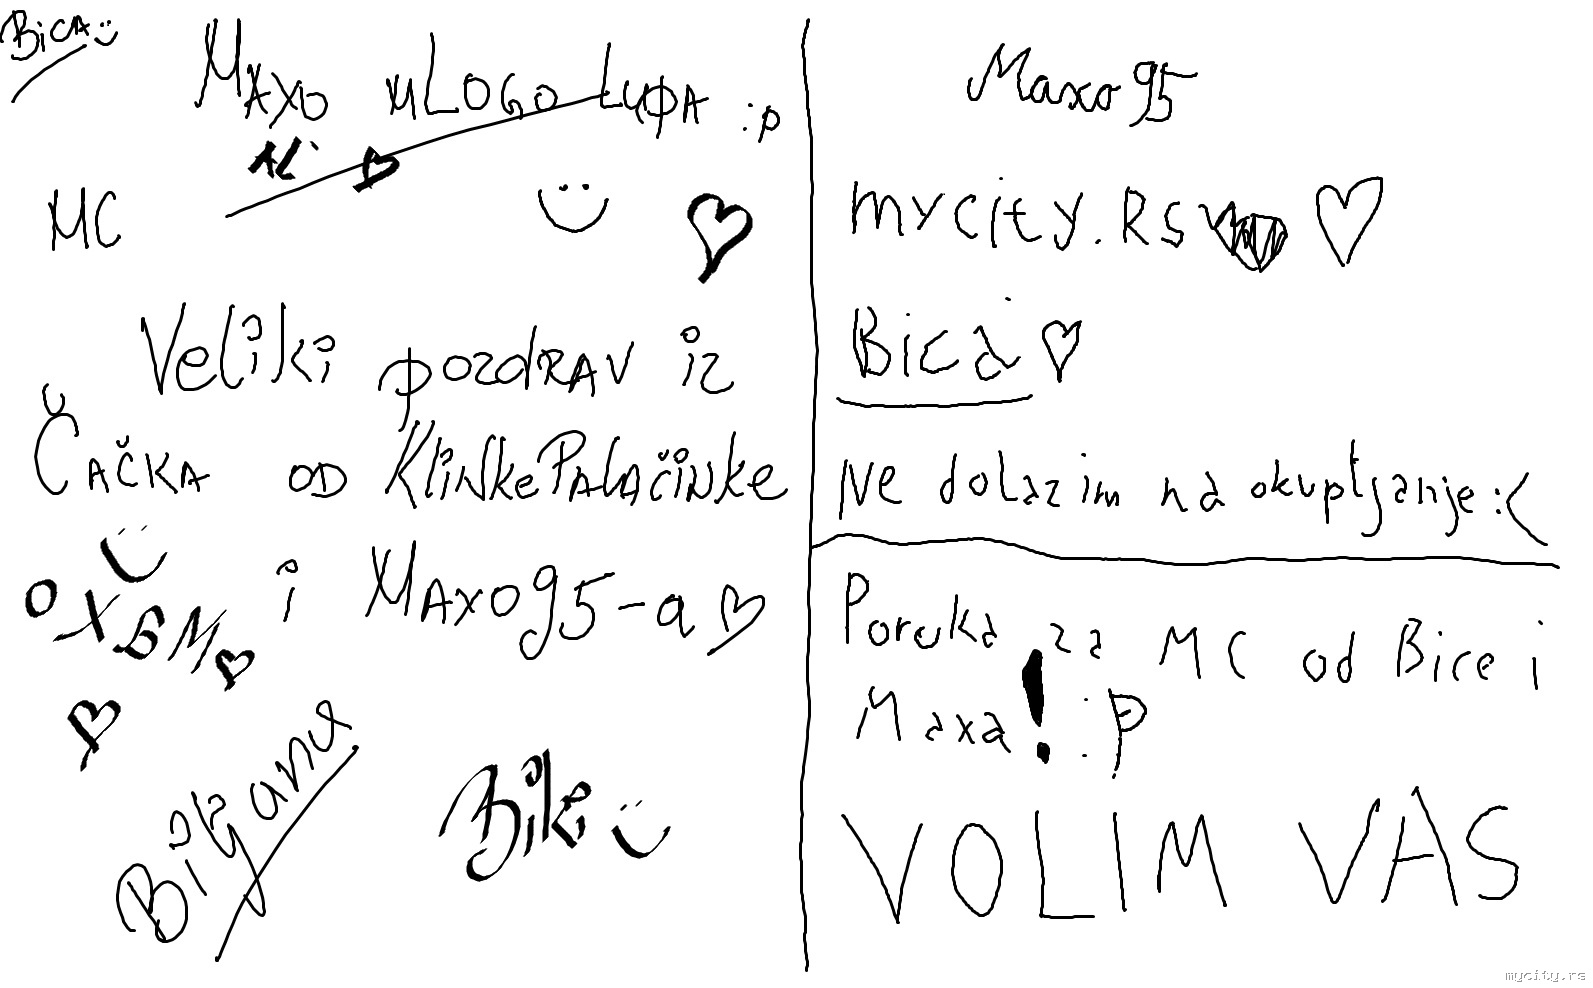 Bica :)
Maxo mLogo Lupa :p
Ali
MC :)
Veliki pozdrav iz
Čačka od KlinkePalačinke
:)
i Maxo95-a
Biljana
Biki :)
Maxo95
mycity.Rs
Bica
Ne dolazim na okupljanje :(
Poruka za MC od Bice i
Maxa! :P
VOLIM VAS
mycity.rs